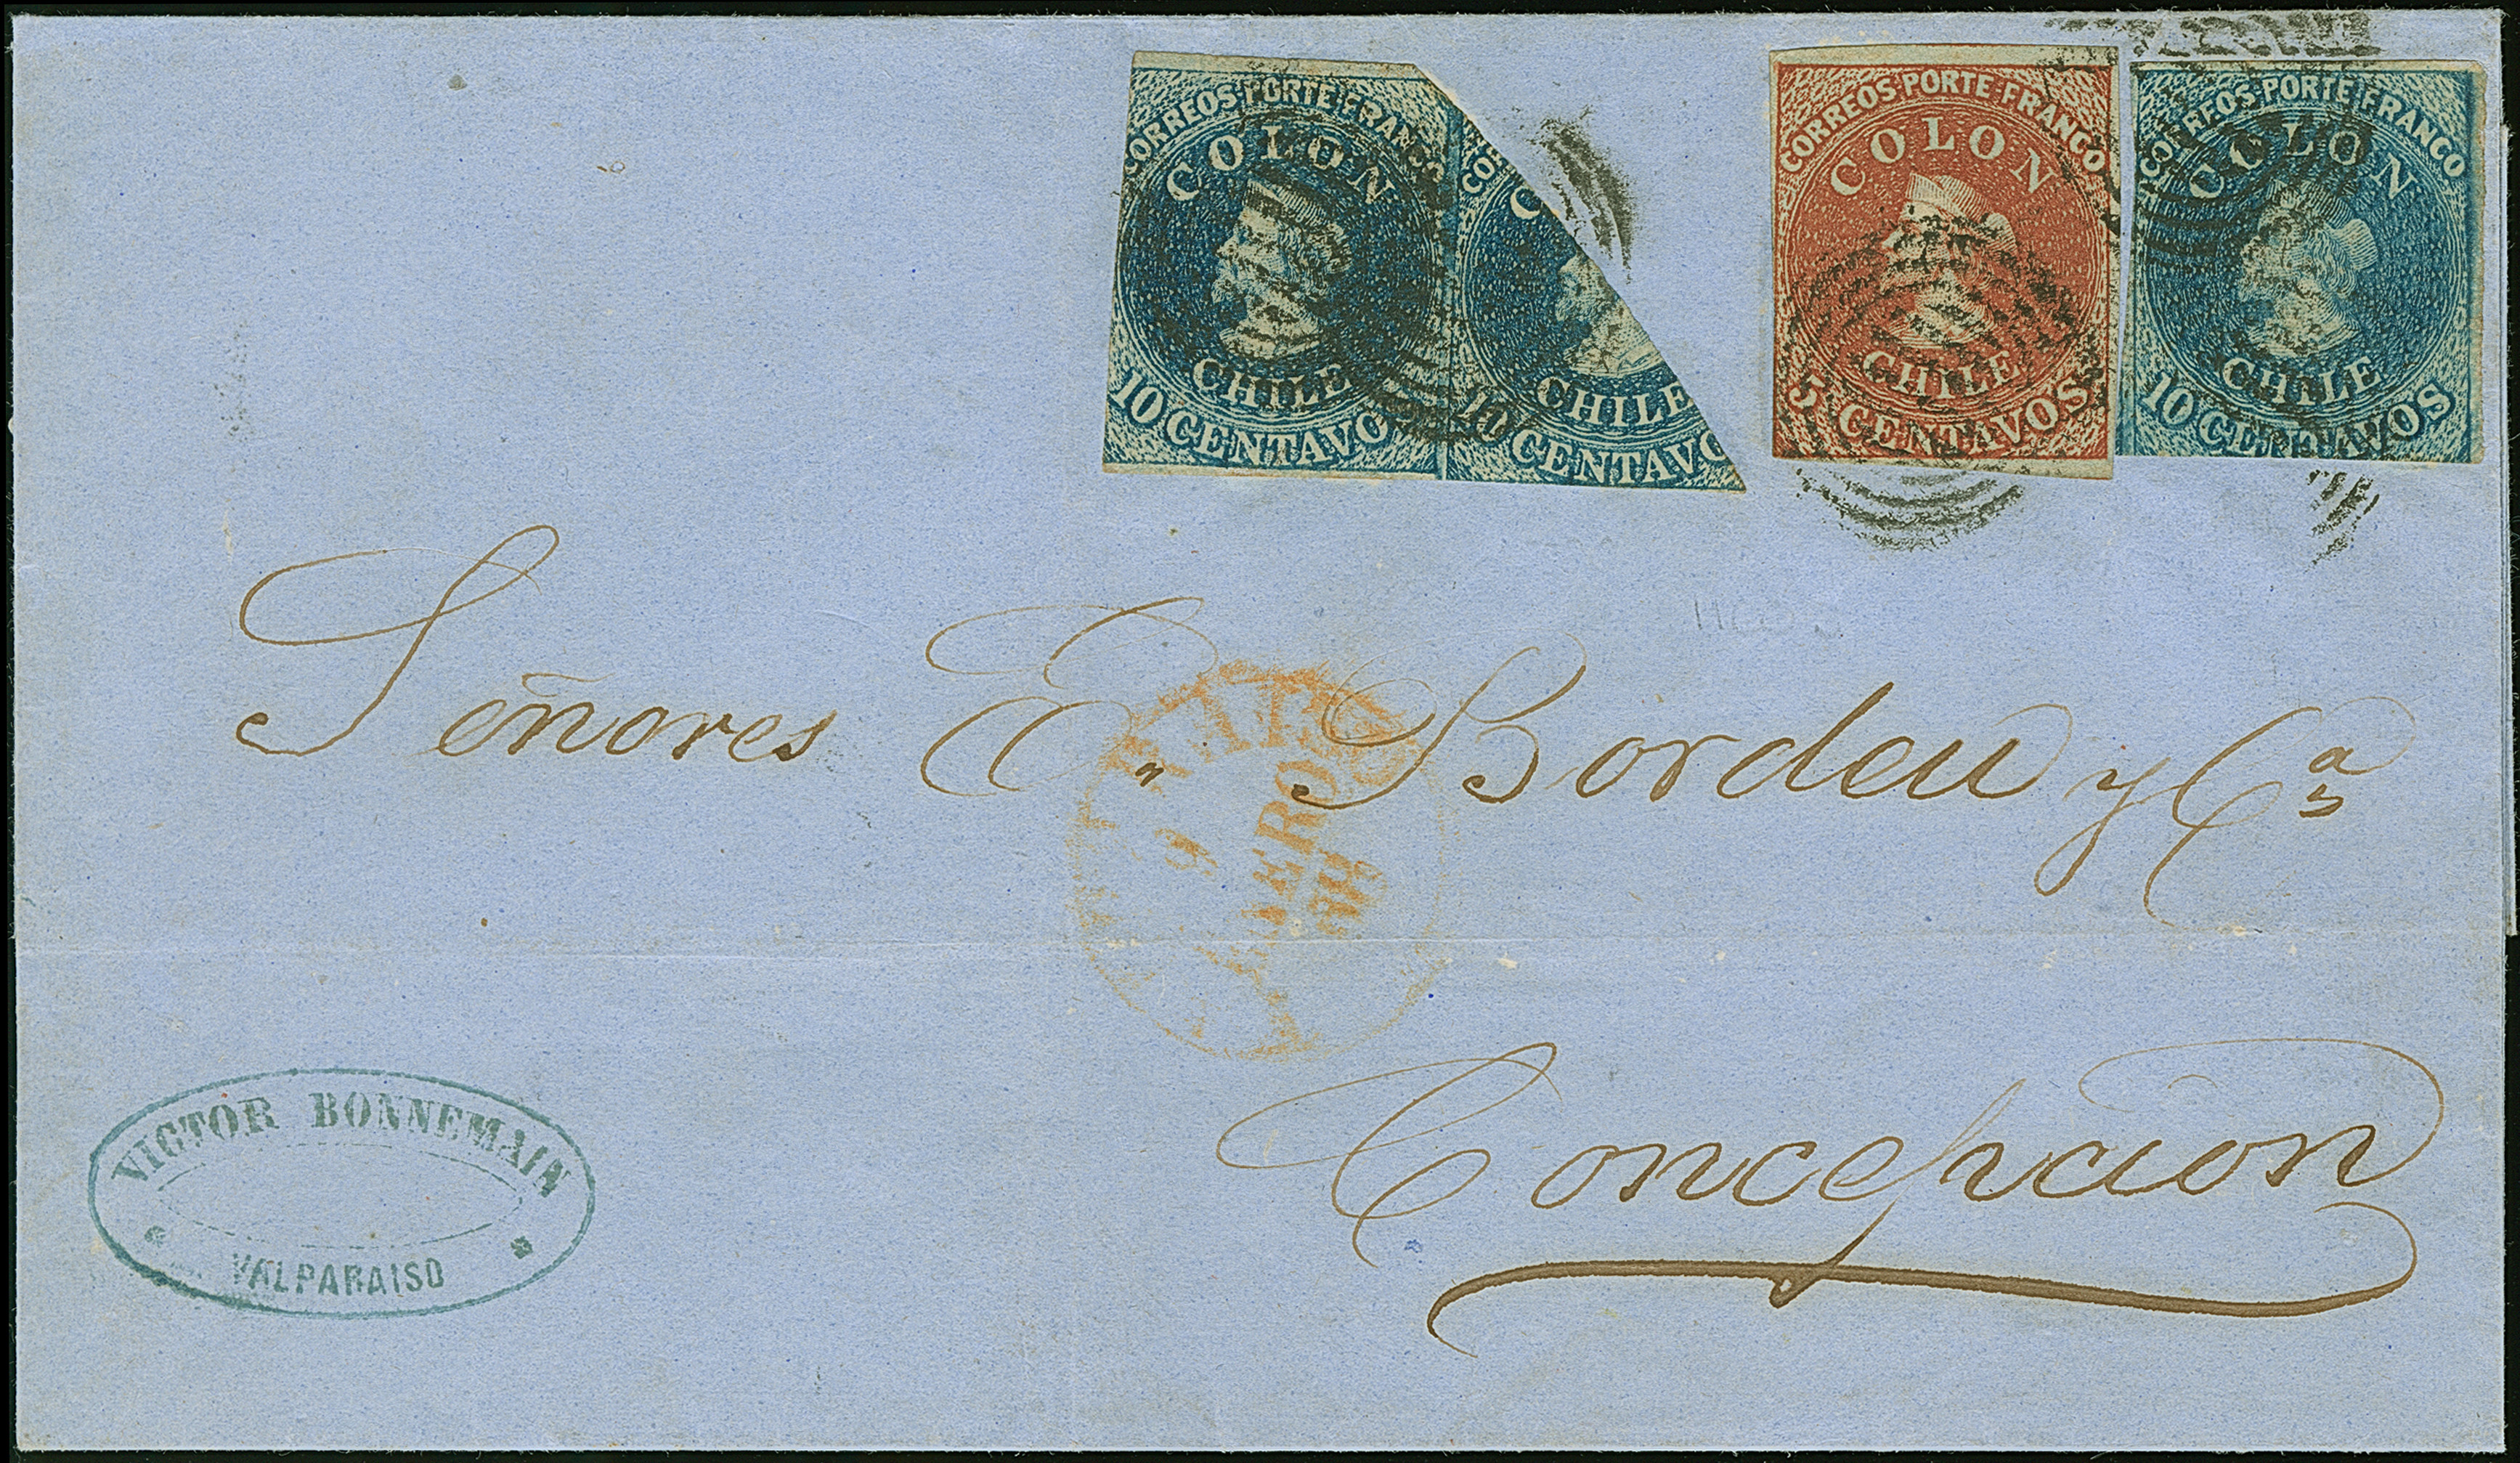 CORREOS PORTE FRANCO
COLON
CHILE
10 CENTAVO
CO
C
CHILE
10 CENTAVO
CORREOS PORTE FRANCO
COLON
CHILE
5 CENTAVOS
CORREOS PORTE FRANCO
COLON
CHILE
10 CENTAVOS
Señores E. Bordeu y Ca
9
ENERO
Concepcion
VICTOR BONNEMAIN
VALPARAISO